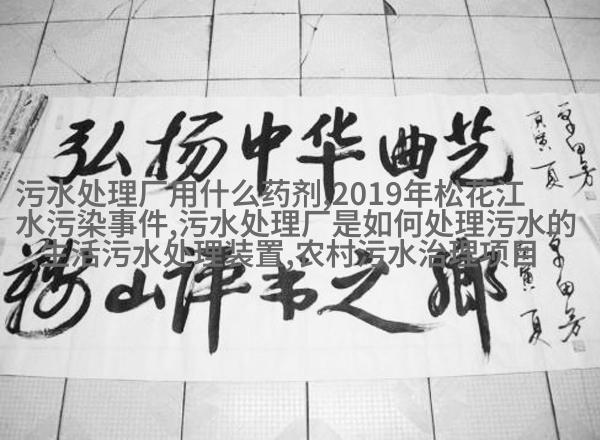 弘扬中华曲艺
庚寅夏
单田芳
污水处理厂用什么药剂,2019年松花江
水污染事件,污水处理厂是如何处理污水的
生活污水处理装置,农村污水治理项目
鞍山评书之鄉
庚寅夏
单田芳